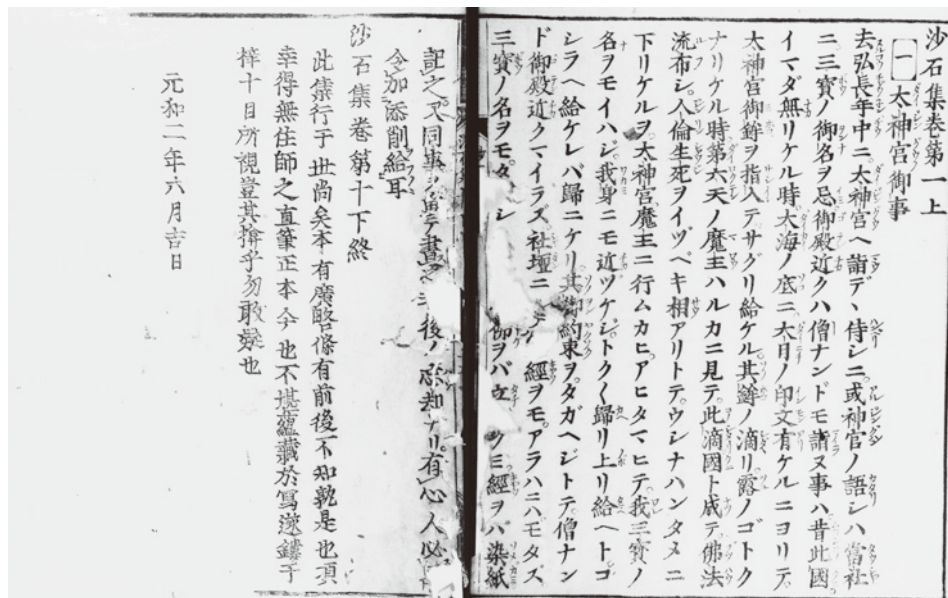 沙石集巻第一上
一 太神宮御事
去弘長年中ニ太神宮ヘ詣デヽ侍シニ或神官ノ語シハ當社
ニ三寳ノ御名ヲ忌御殿近クハ僧ナンドモ詣ヌ事ハ昔此國
イマダ無リケル時大海ノ底ニ大日ノ印文有ケルニヨリテ
太神宮御鉾ヲ指入テサグリ給ケル其鉾ノ滴リ露ノゴトク
ナリケル時第六天ノ魔王ハルカニ見テ此滴國ト成テ佛法
流布シ人倫生死ヲイヅベキ相アリトテウシナハンタメニ
下リケルヲ太神宮魔王ニ行ムカヒアヒタマヒテ我三寳ノ
名ヲモイハジ我身ニモ近ヅケジトク〱歸リ上リ給ヘトコ
シラヘ給ケレバ歸ニケリ其御約束ヲタガヘジトテ僧ナン
ド御殿近クマイラズ社壇ニ テ 經ヲモアラハニハモタズ
三寳ノ名ヲモ シ 仰ヲバ立 クミ經ヲバ染紙
記之又同事 後ノ 有心人必
令加添削給耳
沙石集巻第十下終
此集行于世尚矣本有廣略條有前後不知孰是也頃
幸得無住師之直筆正本今也不堪蘊藏於寫遂鏤于
梓十目所視豈其揜乎勿敢疑也
元和二年六月吉日